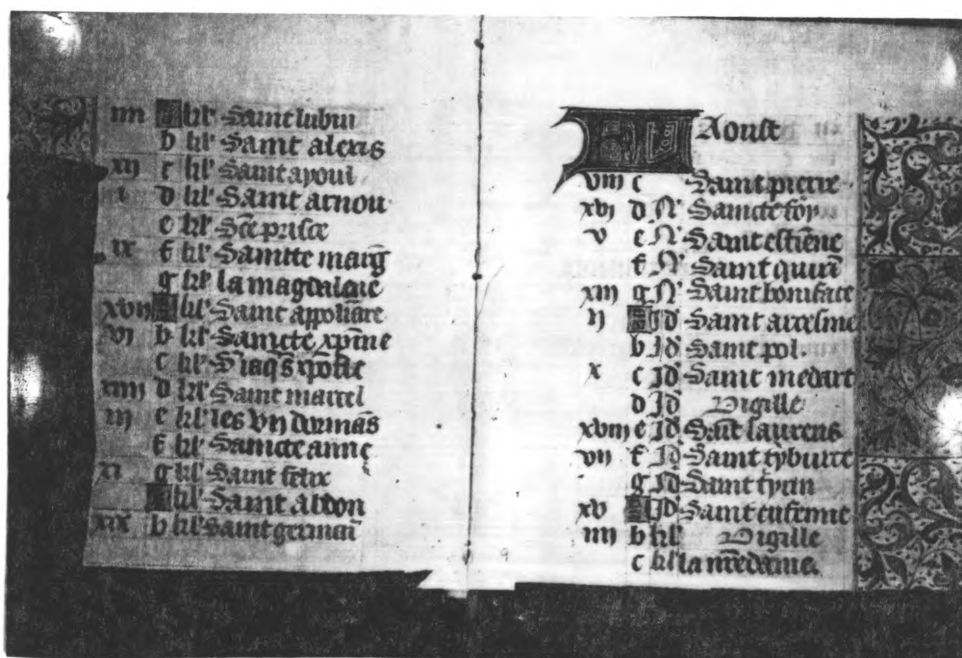 iiii A kl' Saint lubin
b kl' Saint alexis
xij c kl' Saint ayoul
i d kl' Saint arnou
e kl' Sce prisce
ix f kl' Saincte marg̅
g kl' la magdaleine
xvij A kl' Saint appolinare
vj b kl' Saincte xp̅ine
c kl' S iaq̅s
xiiij d kl' Saint marcel
iij e kl' les vij dormās
f kl' Saincte anne
xi g kl' Saint felix
A kl' Saint abdon
xix b kl' saint germaī
Aoust
viij c Saint pierre
xvj d N' Saincte foy
v e N' Saint estiēne
f N' Saint quirī
xiij g N' Saint boniface
ij A Id' Saint
b Id' Saint pol.
x c Id' Saint medart
d Id' Vigille
xviij e Id' Saīt laurens
vij f Id' Saint tyburce
g Id' Saint
xv A Id' Saint eufenne
iiij b kl' Vigille
c kl' la
9